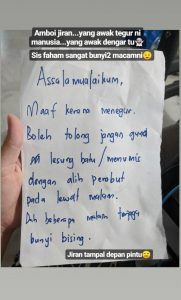 Amboi jiran...yang awak tegur ni
manusia...yang awak dengar tu👻
Sis faham sangat bunyi2 macamni😉
Assalamualaikum,
Maaf kerana menegur.
Boleh tolong jangan guna
lesung batu / menumis
dengan alih perabut
pada lewat malam.
Dah beberapa malam terjaga
bunyi bising.
Jiran tampal depan pintu😉